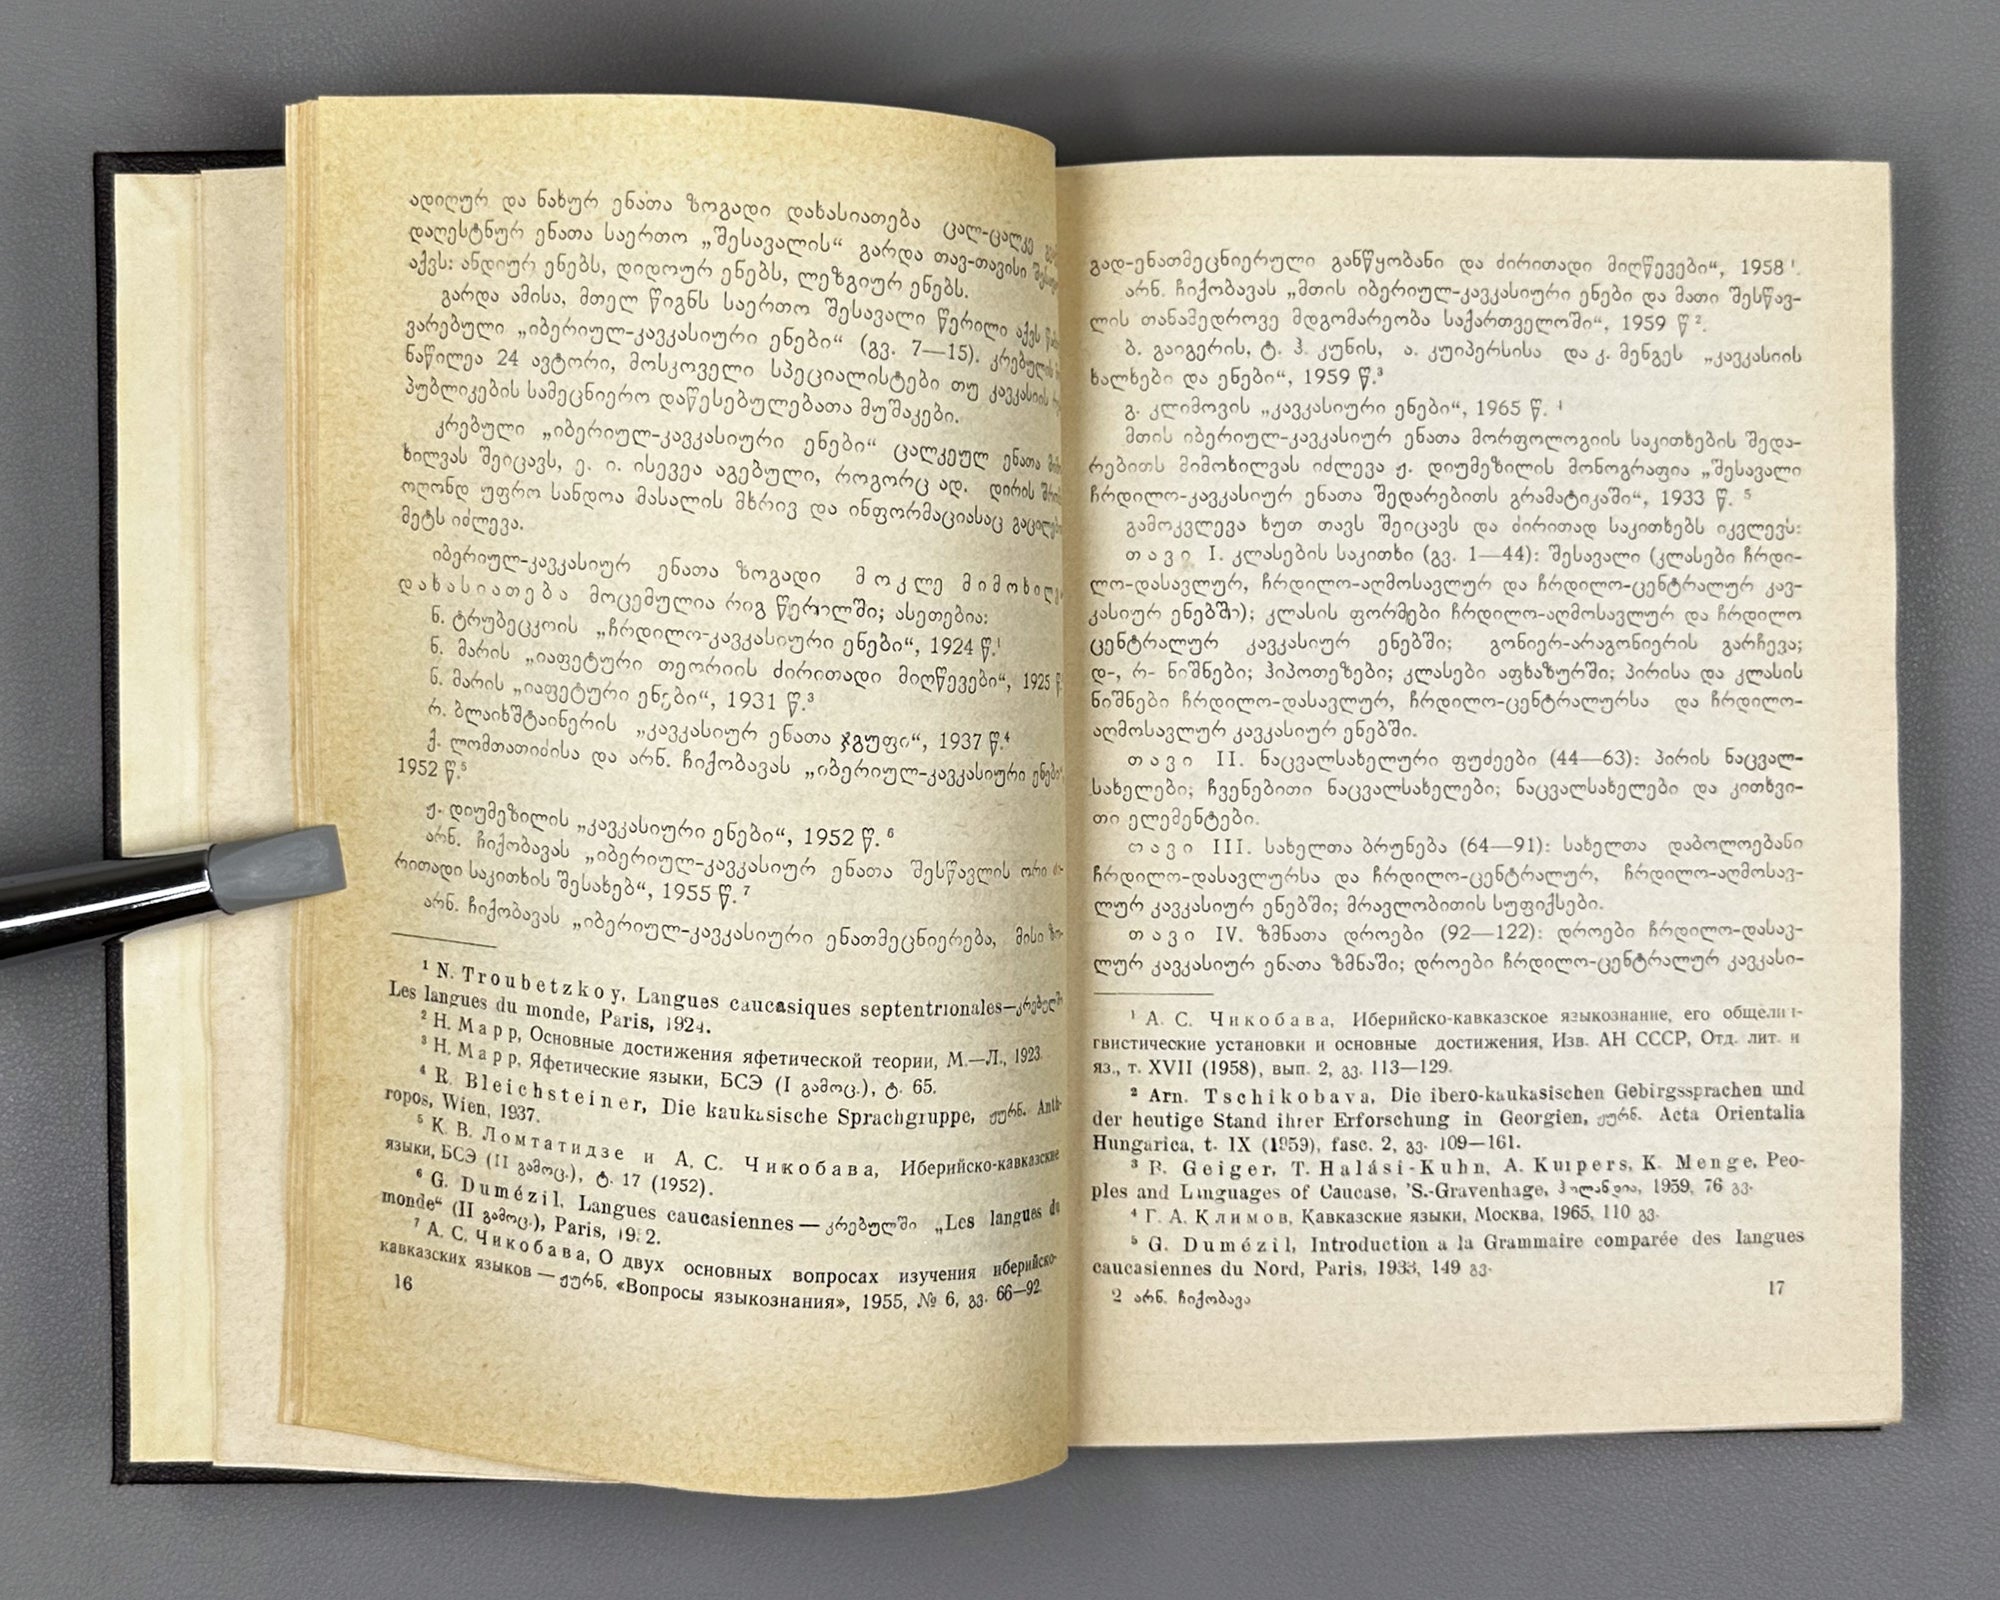 ადიღურ და ნახურ ენათა ზოგადი დახასიათება ცალ-ცალკე
დაღესტნურ ენათა საერთო „შესავალის“ გარდა თავ-თავისი
აქვს: ანდიურ ენებს, დიდოურ ენებს, ლეზგიურ ენებს.
გარდა ამისა, მთელ წიგნს საერთო შესავალი წერილი აქვს
ვარებული „იბერიულ-კავკასიური ენები“ (გვ. 7—15). კრებულის
ნაწილეა 24 ავტორი, მოსკოველი სპეციალისტები თუ კავკასიის
პუბლიკების სამეცნიერო დაწესებულებათა მუშაკები.
კრებული „იბერიულ-კავკასიური ენები“ ცალკეულ ენათა
ხილვას შეიცავს, ე. ი. ისევეა აგებული, როგორც ად. დირის
ოღონდ უფრო სანდოა მასალის მხრივ და ინფორმაციასაც
მეტს იძლევა.
იბერიულ-კავკასიურ ენათა ზოგადი მოკლე
დახასიათება მოცემულია რიგ წერილში; ასეთებია:
ნ. ტრუბეცკოის „ჩრდილო-კავკასიური ენები“, 1924 წ.¹
ნ. მარის „იაფეტური თეორიის ძირითადი მიღწევები“, 1925
ნ. მარის „იაფეტური ენები“, 1931 წ.³
რ. ბლაიხშტაინერის „კავკასიურ ენათა ჯგუფი“, 1937 წ.⁴
ქ. ლომთათიძისა და არნ. ჩიქობავას „იბერიულ-კავკასიური ენები“,
1952 წ.⁵
ჟ. დიუმეზილის „კავკასიური ენები“, 1952 წ. ⁶
არნ. ჩიქობავას „იბერიულ-კავკასიურ ენათა შესწავლის ორი
რითადი საკითხის შესახებ“, 1955 წ. ⁷
არნ. ჩიქობავას „იბერიულ-კავკასიური ენათმეცნიერება, მისი ზო-
¹ N. Troubetzkoy, Langues caucasiques septentrionales—კრებულში
Les langues du monde, Paris, 1924.
² Н. Марр, Основные достижения яфетической теории, М.—Л., 1923.
³ Н. Марр, Яфетические языки, БСЭ (I გამოც.), ტ. 65.
⁴ R. Bleichsteiner, Die kaukasische Sprachgruppe, ჟურნ. Anth-
ropos, Wien, 1937.
⁵ К. В. Ломтатидзе и А. С. Чикобава, Иберийско-кавказские
языки, БСЭ (II გამოც.), ტ. 17 (1952).
⁶ G. Dumézil, Langues caucasiennes — კრებულში „Les langues du
monde“ (II გამოც.), Paris, 1952.
⁷ А. С. Чикобава, О двух основных вопросах изучения иберийско-
кавказских языков — ჟურნ. «Вопросы языкознания», 1955, № 6, გვ. 66—92.
16
გად-ენათმეცნიერული განწყობანი და ძირითადი მიღწევები“, 1958 ¹.
არნ. ჩიქობავას „მთის იბერიულ-კავკასიური ენები და მათი შესწავ-
ლის თანამედროვე მდგომარეობა საქართველოში“, 1959 წ ².
ბ. გაიგერის, ტ. ჰ. კუნის, ა. კუიპერსისა და კ. მენგეს „კავკასიის
ხალხები და ენები“, 1959 წ.³
გ. კლიმოვის „კავკასიური ენები“, 1965 წ. ⁴
მთის იბერიულ-კავკასიურ ენათა მორფოლოგიის საკითხების შედა-
რებითს მიმოხილვას იძლევა ჟ. დიუმეზილის მონოგრაფია „შესავალი
ჩრდილო-კავკასიურ ენათა შედარებითს გრამატიკაში“, 1933 წ. ⁵
გამოკვლევა ხუთ თავს შეიცავს და ძირითად საკითხებს იკვლევს:
თავი I. კლასების საკითხი (გვ. 1—44): შესავალი (კლასები ჩრდი-
ლო-დასავლურ, ჩრდილო-აღმოსავლურ და ჩრდილო-ცენტრალურ კავ-
კასიურ ენებში); კლასის ფორმები ჩრდილო-აღმოსავლურ და ჩრდილო
ცენტრალურ კავკასიურ ენებში; გონიერ-არაგონიერის გარჩევა;
დ-, რ- ნიშნები; ჰიპოთეზები; კლასები აფხაზურში; პირისა და კლასის
ნიშნები ჩრდილო-დასავლურ, ჩრდილო-ცენტრალურსა და ჩრდილო-
აღმოსავლურ კავკასიურ ენებში.
თავი II. ნაცვალსახელური ფუძეები (44—63): პირის ნაცვალ-
სახელები; ჩვენებითი ნაცვალსახელები; ნაცვალსახელები და კითხვი-
თი ელემენტები.
თავი III. სახელთა ბრუნება (64—91): სახელთა დაბოლოებანი
ჩრდილო-დასავლურსა და ჩრდილო-ცენტრალურ, ჩრდილო-აღმოსავ-
ლურ კავკასიურ ენებში; მრავლობითის სუფიქსები.
თავი IV. ზმნათა დროები (92—122): დროები ჩრდილო-დასავ-
ლურ კავკასიურ ენათა ზმნაში; დროები ჩრდილო-ცენტრალურ კავკასი-
¹ А. С. Чикобава, Иберийско-кавказское языкознание, его общелин-
гвистические установки и основные достижения, Изв. АН СССР, Отд. лит. и
яз., т. XVII (1958), вып. 2, გვ. 113—129.
² Arn. Tschikobava, Die ibero-kaukasischen Gebirgssprachen und
der heutige Stand ihrer Erforschung in Georgien, ჟურნ. Acta Orientalia
Hungarica, t. IX (1959), fasc. 2, გვ. 109—161.
³ B. Geiger, T. Halási-Kuhn, A. Kuipers, K. Menge, Peo-
ples and Languages of Caucase, 'S.-Gravenhage, ჰოლანდია, 1959, 76 გვ.
⁴ Г. А. Климов, Кавказские языки, Москва, 1965, 110 გვ.
⁵ G. Dumézil, Introduction a la Grammaire comparée des langues
caucasiennes du Nord, Paris, 1933, 149 გვ.
2 არნ. ჩიქობავა
17